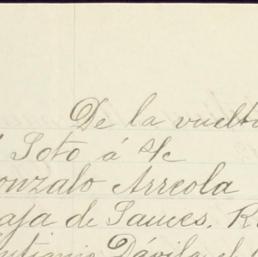 De la vuelta
Soto á 4c
Gonzalo Arreola
Caja de Sauces. R
Antonio Dávila el